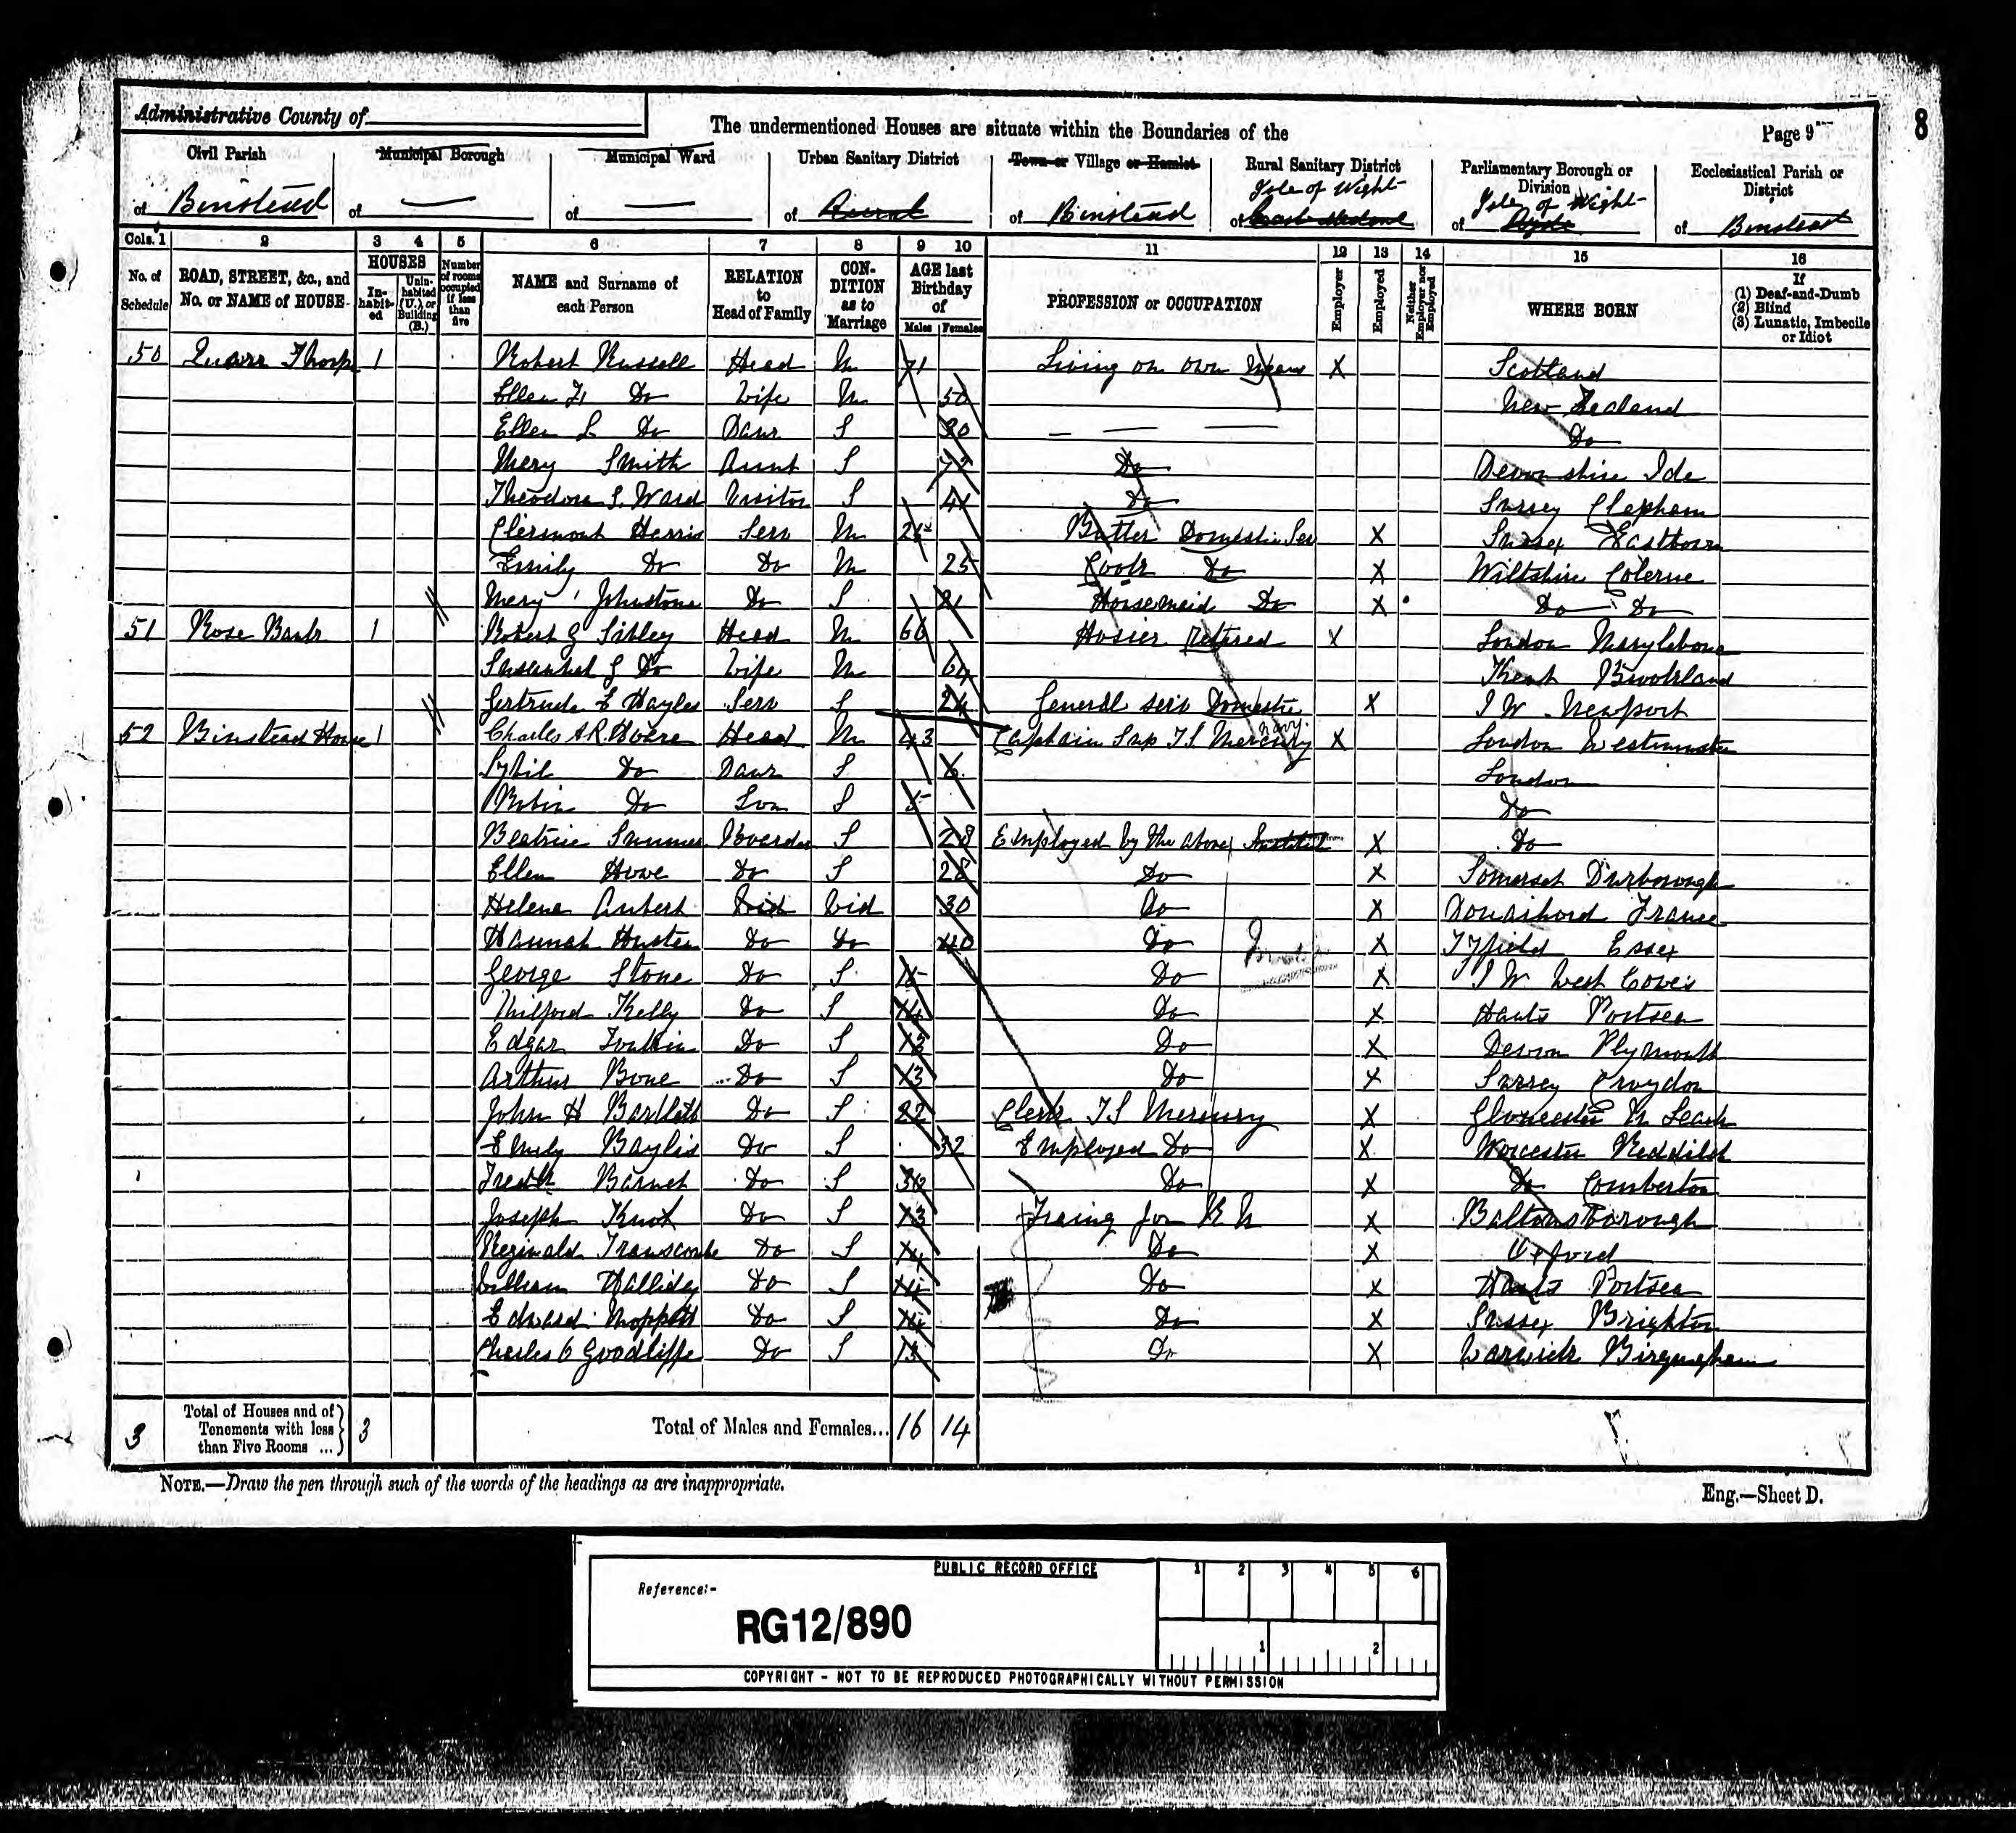 Administrative County of
The undermentioned Houses are situate within the Boundaries of the
Page 9
8
Civil Parish
Municipal Borough
Municipal Ward
Urban Sanitary District
Town or Village or Hamlet
Rural Sanitary District
Parliamentary Borough or Division
Ecclesiastical Parish or District
of Binstead
of —
of —
of Rural
of Binstead
of Isle of Wight
of Isle of Wight Ryde
of Binstead
Cols. 1 2 3 4 5 6 7 8 9 10 11 12 13 14 15 16
No. of Schedule
ROAD, STREET, &c., and No. or NAME of HOUSE
HOUSES
In-habit-ed
Unin-habited (U.) or Building (B.)
Number of rooms occupied if less than five
NAME and Surname of each Person
RELATION to Head of Family
CON-DITION as to Marriage
AGE last Birthday of
Males Females
PROFESSION or OCCUPATION
Employer
Employed
Neither Employer nor Employed
WHERE BORN
If
(1) Deaf-and-Dumb
(2) Blind
(3) Lunatic, Imbecile or Idiot
50 Quarr Thorpe 1 Robert Russell Head M 71 Living on own Means X Scotland
Ellen Do Wife M 50 New Zealand
Ellen L Do Daur S 20 — — — Do
Mary Smith Aunt S 72 Do Devonshire Ide
Theodora S. Ward Visitor S 41 Do Surrey Clapham
Clermont Harris Serv M Butler Domestic Ser X Sussex Eastbourn
Emily Do Do M 25 Cook Do X Wiltshire Colerne
Mary Johnstone Do S 21 Housemaid Do X Do Do
51 Rose Bank 1 Robert G Sibley Head M 66 Hosier retired X London Marylebone
G Do Wife M 64 Kent Brookland
Gertrude E Hayles Serv S 24 General serv Domestic X I W Newport
52 Binstead House 1 Charles A.R. Hoare Head M 43 Captain Sup T.S. Mercury Navy X London Westminster
Sybil Do Daur S 6 London
Robin Do Son S 5 Do
Beatrice Sumner Boarder S 28 Employed by the above X Do
Ellen Howe Do S 28 Do X Somerset
Helene Aubert Wid Wid 30 Do X France
Hannah Do Do 40 Do X Fyfield Essex
George Stone Do S 15 Do X I W West Cowes
Milford Kelly Do S 14 Do X Hants Portsea
Edgar Do S 13 Do X Devon Plymouth
Arthur Bone Do S 13 Do X Surrey Croydon
John H Bartlett Do S 22 Clerk T S Mercury X Gloucester N Leach
Emily Baylis Do S 32 Employed Do X Worcester Redditch
Fredk Barnet Do S Do X Do Comberton
Joseph Knot Do S 13 Traing for R N X Baltonsborough
Reginald Transcombe Do S 14 Do X Oxford
William Halliday Do S 14 Do X Hants Portsea
Edward Moppett Do S 14 Do X Sussex Brighton
Charles C Goodliffe Do S 13 Do X Warwick Birmingham
3 Total of Houses and of Tenements with less than Five Rooms ... 3 Total of Males and Females... 16 14
NOTE.—Draw the pen through such of the words of the headings as are inappropriate.
Eng.—Sheet D.
PUBLIC RECORD OFFICE
Reference:-
RG12/890
1 2 3 4 5 6
1 2
COPYRIGHT - NOT TO BE REPRODUCED PHOTOGRAPHICALLY WITHOUT PERMISSION